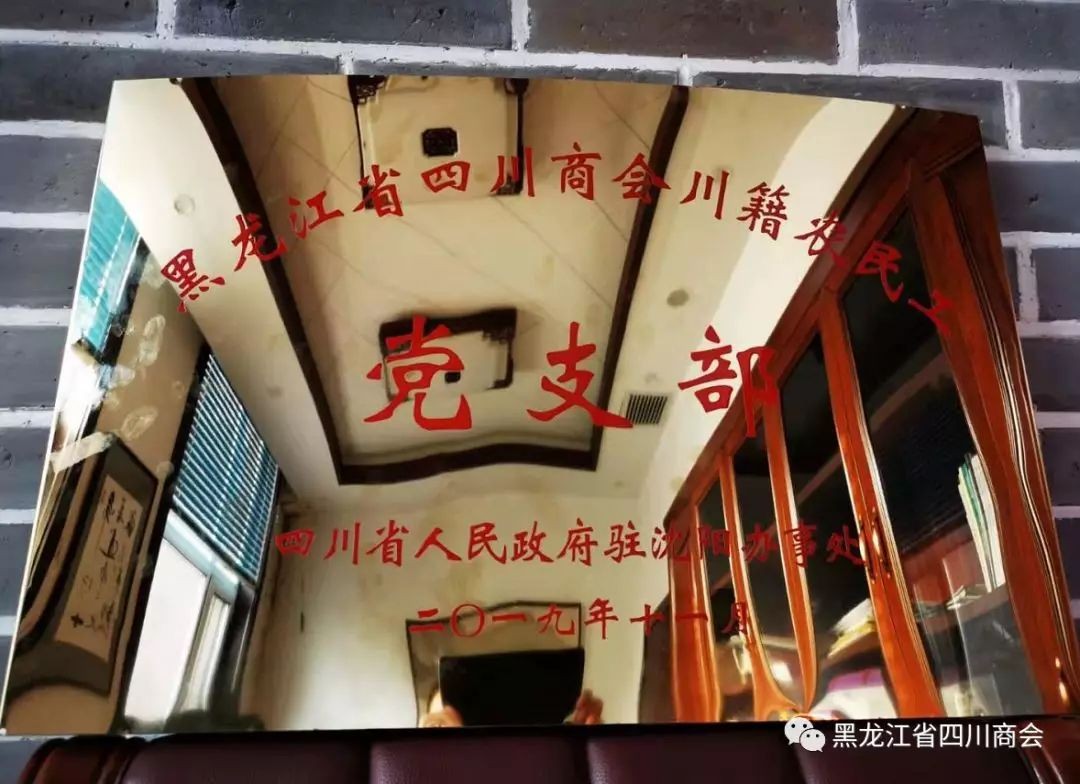 黑龙江省四川商会川籍农民工
党支部
四川省人民政府驻沈阳办事处
二〇一九年十一月
黑龙江省四川商会